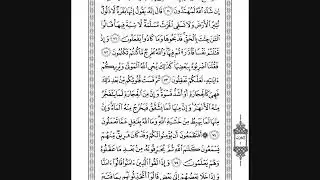 إِن شَاءَ اللَّهُ لَمُهْتَدُونَ ٧٠ قَالَ إِنَّهُ يَقُولُ إِنَّهَا بَقَرَةٌ لَّا ذَلُولٌ
تُثِيرُ الْأَرْضَ وَلَا تَسْقِي الْحَرْثَ مُسَلَّمَةٌ لَّا شِيَةَ فِيهَا قَالُوا
الْـَٰٔنَ جِئْتَ بِالْحَقِّ فَذَبَحُوهَا وَمَا كَادُوا يَفْعَلُونَ ٧١ وَإِذْ
قَتَلْتُمْ نَفْسًا فَادَّارَأْتُمْ فِيهَا وَاللَّهُ مُخْرِجٌ مَّا كُنتُمْ تَكْتُمُونَ ٧٢
فَقُلْنَا اضْرِبُوهُ بِبَعْضِهَا كَذَٰلِكَ يُحْيِ اللَّهُ الْمَوْتَىٰ وَيُرِيكُمْ
ءَايَٰتِهِ لَعَلَّكُمْ تَعْقِلُونَ ٧٣ ثُمَّ قَسَتْ قُلُوبُكُم مِّن بَعْدِ ذَٰلِكَ
فَهِيَ كَالْحِجَارَةِ أَوْ أَشَدُّ قَسْوَةً وَإِنَّ مِنَ الْحِجَارَةِ لَمَا يَتَفَجَّرُ
مِنْهُ الْأَنْهَٰرُ وَإِنَّ مِنْهَا لَمَا يَشَّقَّقُ فَيَخْرُجُ مِنْهُ الْمَاءُ وَإِنَّ
مِنْهَا لَمَا يَهْبِطُ مِنْ خَشْيَةِ اللَّهِ وَمَا اللَّهُ بِغَٰفِلٍ عَمَّا تَعْمَلُونَ
٧٤ أَفَتَطْمَعُونَ أَن يُؤْمِنُوا لَكُمْ وَقَدْ كَانَ فَرِيقٌ مِّنْهُمْ
يَسْمَعُونَ كَلَٰمَ اللَّهِ ثُمَّ يُحَرِّفُونَهُ مِن بَعْدِ مَا عَقَلُوهُ
وَهُمْ يَعْلَمُونَ ٧٥ وَإِذَا لَقُوا الَّذِينَ ءَامَنُوا قَالُوا ءَامَنَّا
وَإِذَا خَلَا بَعْضُهُمْ إِلَىٰ بَعْضٍ قَالُوا أَتُحَدِّثُونَهُم بِمَا فَتَحَ